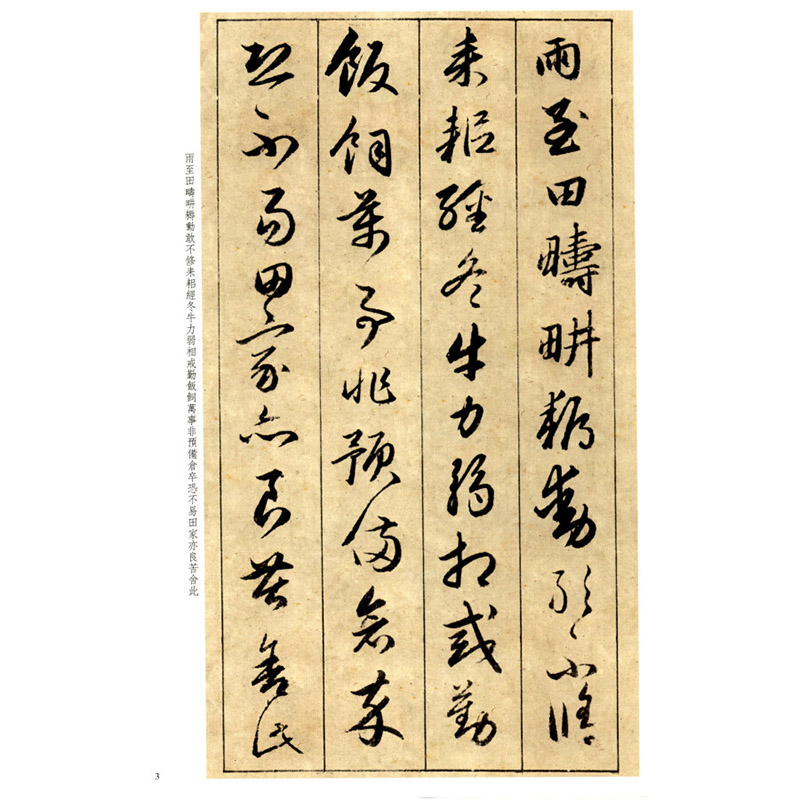 雨至田疇畊耨動敢不修
耒耜經冬牛力弱相戒勤
飯飼萬事非預備倉卒
恐不易田家亦良苦舍此
雨至田疇畊耨動敢不修耒耜經冬牛力弱相戒勤飯飼萬事非預備倉卒恐不易田家亦良苦舍此
3